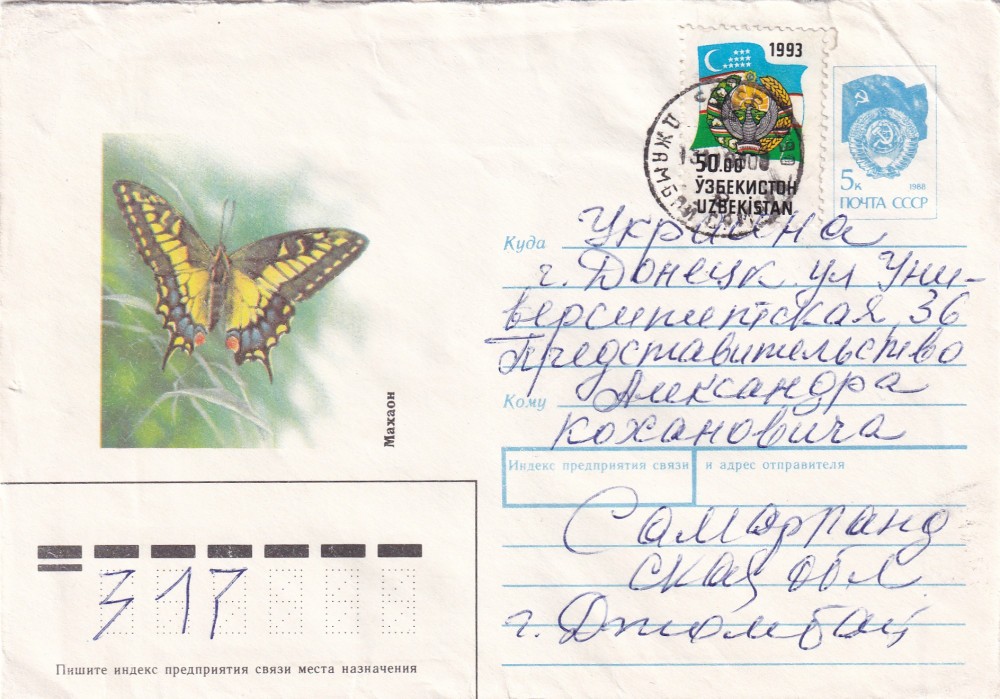 1993
50.00
ЎЗБЕКИСТОН
UZBEKISTAN
5к
1988
ПОЧТА СССР
Куда Украина
г. Донецк ул Уни-
верситетская 36
Представительство
Кому Александра
Кохановича
Махаон
Индекс предприятия связи и адрес отправителя
Самарканд
ская обл
г. Джомбай
317
Пишите индекс предприятия связи места назначения